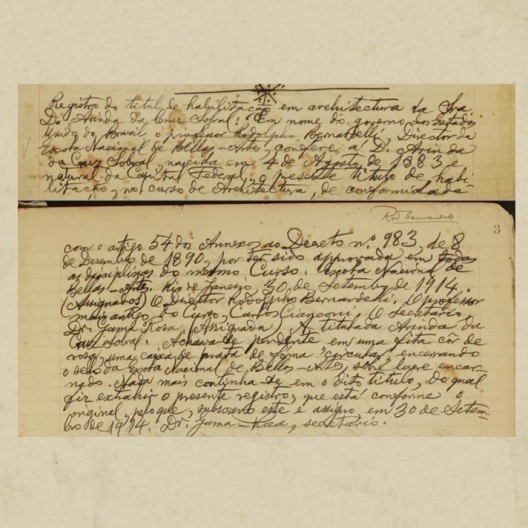 Registro do titulo de habilitação em architectura da Sra.
D. Arinda da Cruz Sobral. Em nome do governo dos Estados
Unidos do Brasil o professor Rodolpho Bernardelli, Director da
Escola Nacional de Bellas-Artes, confere a D. Arinda
da Cruz Sobral, nascida em 4 de Agosto de 1883 e
natural da Capital Federal, o presente titulo de habi-
litação, no curso de Architectura, de conformidade
Rod Bernardelli
3
com o artigo 54 dos Annexos ao Decreto nº 983, de 8
de Dezembro de 1890, por ter sido approvada em todas
as disciplinas do mesmo Curso. Escola Nacional de
Bellas-Artes, Rio de Janeiro, 30 de Setembro de 1914.
(Assignados) O Director Rodolpho Bernardelli. O professor
mais antigo do Curso, Carlos Cianconi, O secretario
Dr. Gama Rosa, (Assignada), A titulada Arinda da
Cruz Sobral. Achava-se pendente em uma fita côr de
rosa, uma caixa de prata de forma circular, encerrando
o sello da Escola Nacional de Bellas-Artes, sobre lacre encar-
nado. Nada mais continha-se em o dito titulo, do qual
fiz extrahir o presente registro, que está conforme o
original, pelo que, subscrevo este e assigno, em 30 de Setem-
bro de 1914. Dr. Gama-Rosa, secretario.